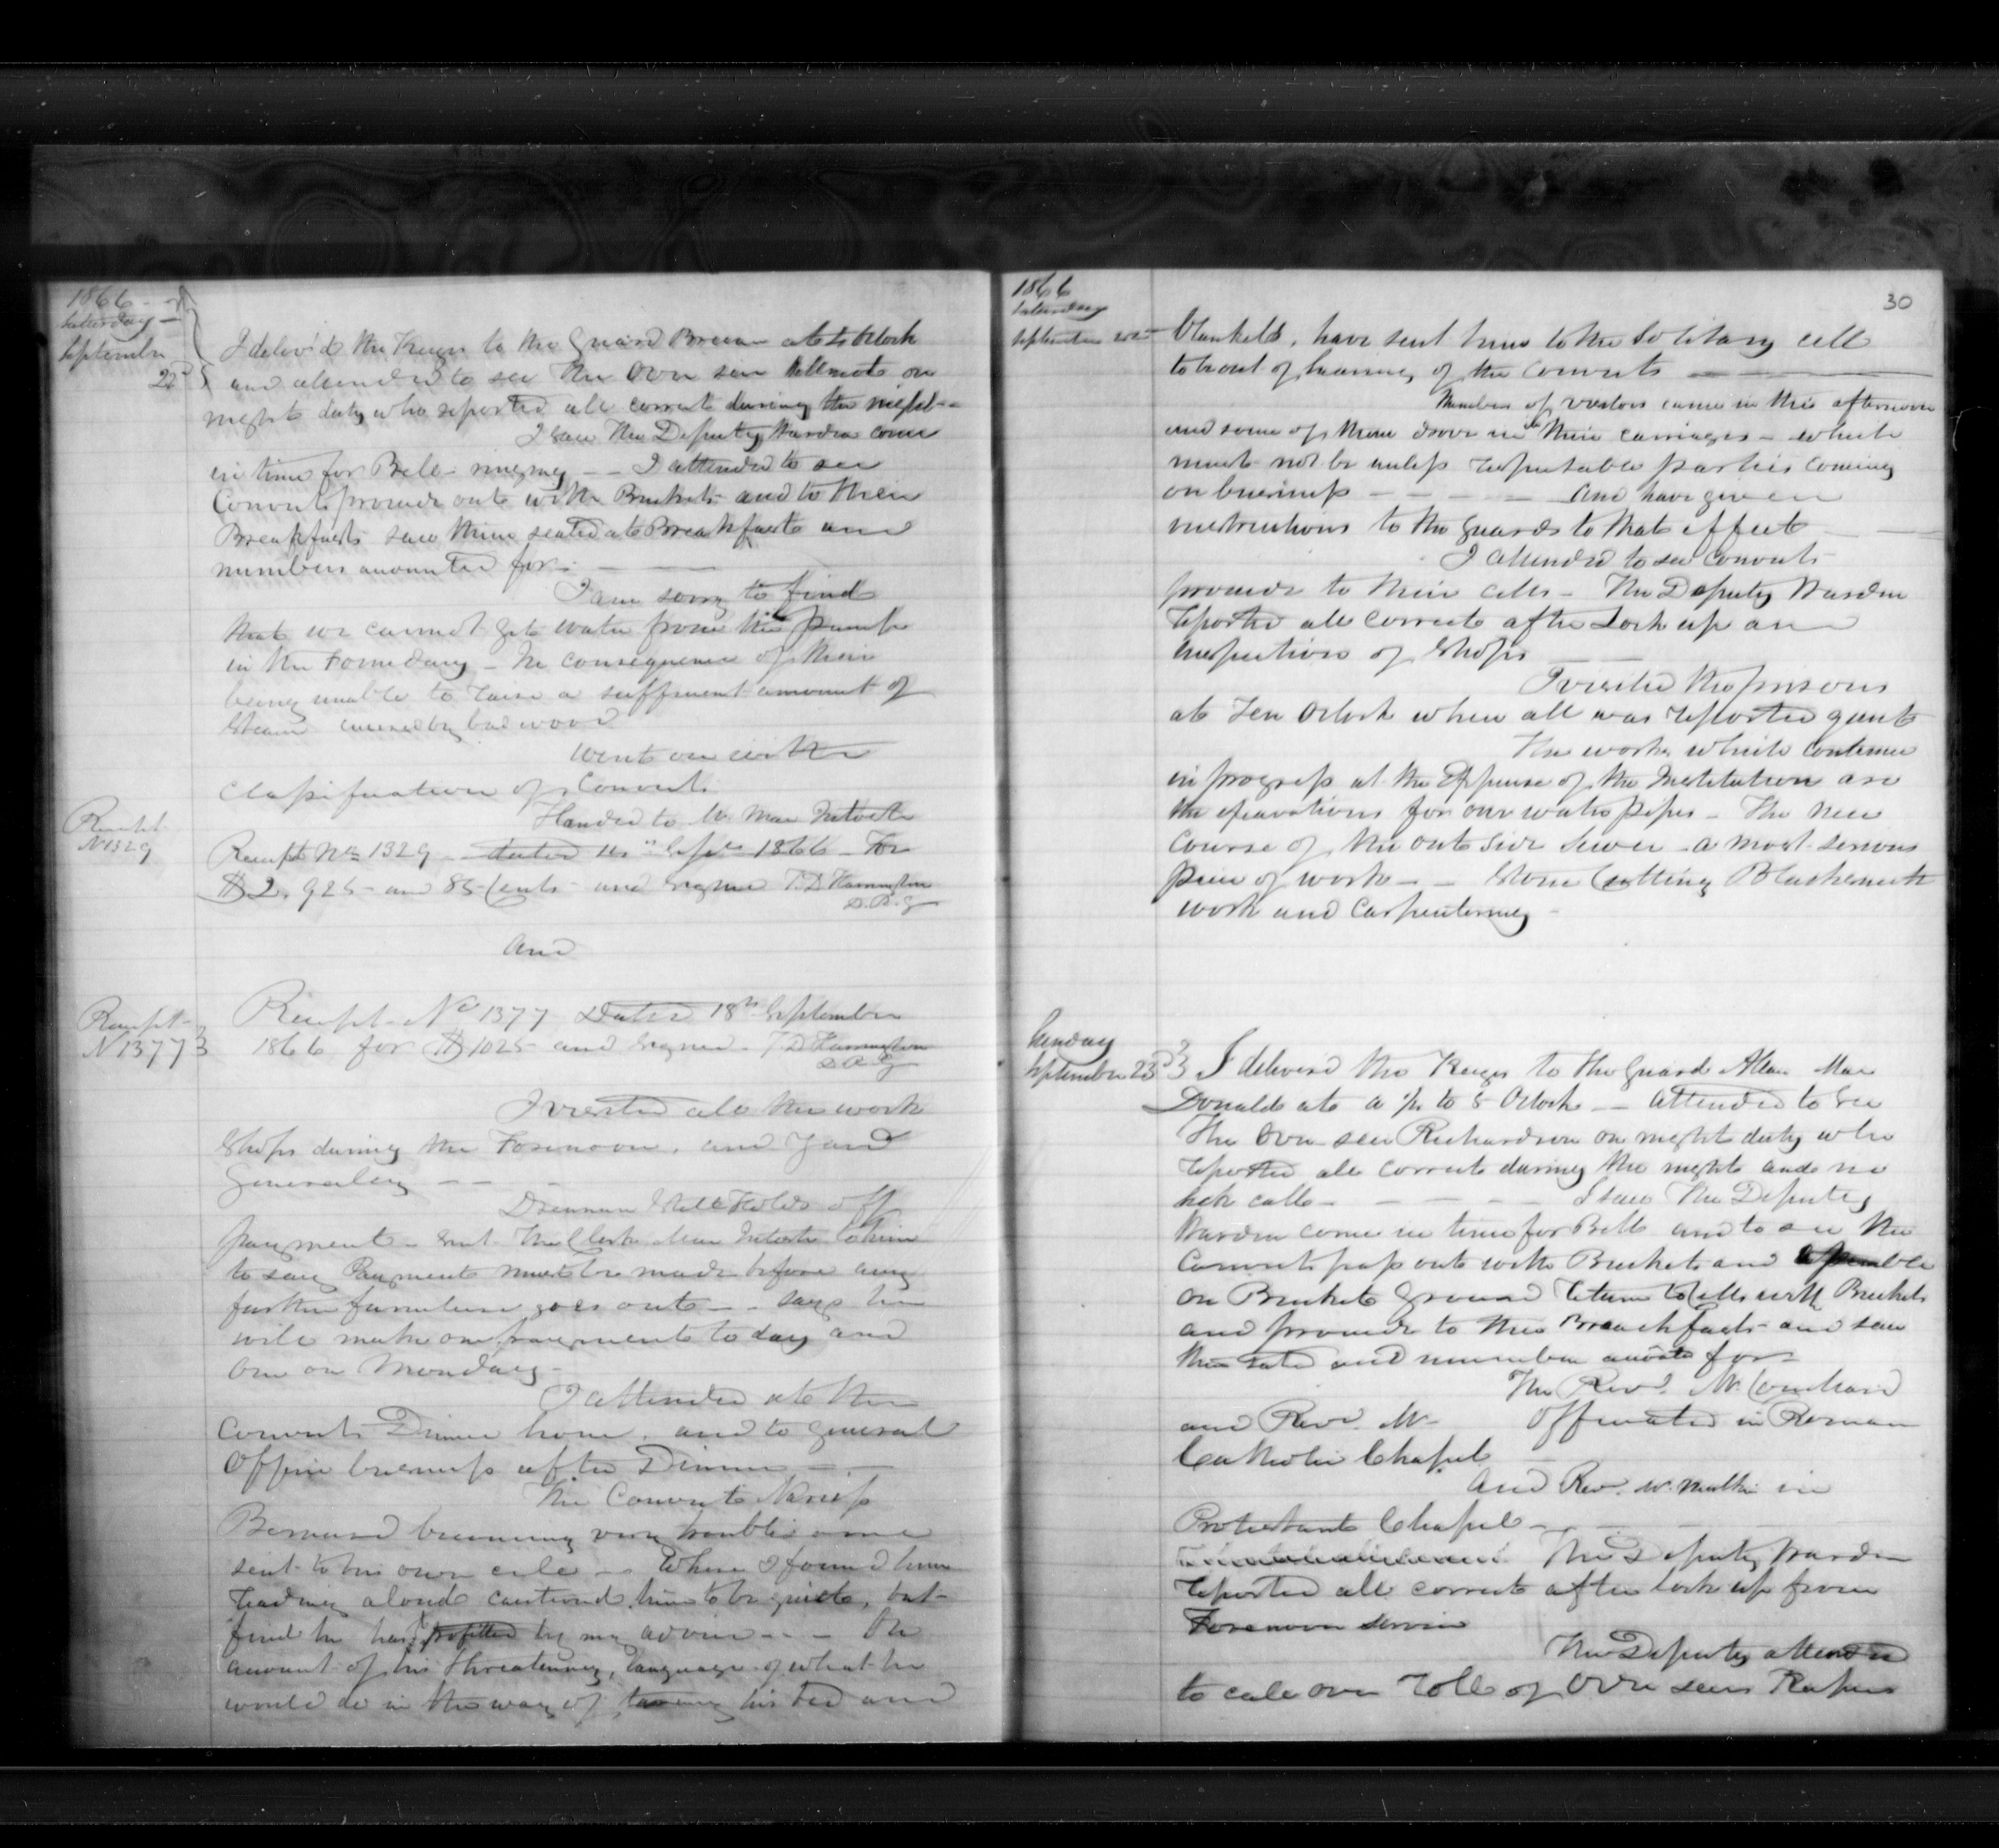 1866
Saturday
September
22d
I deliver'd the Keys to the Guard at 5 Oclock
and attended to see the Over seer on
night duty who reported all correct during the night
I saw The Deputy Warden come
in time for Bell-ringing - - I attended to see
Convicts proceede out with Buckets and to their
Breakfasts saw them seated at Breakfast and
numbers accounted for -
I am sorry to find
that we cannot get water from the pump
in the Foundary - In consequence of their
being unable to raise a suffient amount of
Steam caused by bad wood
Went on with
Classification of Convicts
Handed to Mr. Mac Intosh
Receipt
N 1329
Receipt No 1329 - dated Septr 1866 - For
$2,925 - and 85 Cents - and signed T. D. Harrington
D. R. G
And
Receipt
N 1377
Receipt No 1377 Dated 18th September
1866 for $1025 - and signed - T D Harrington
D R G
I visited all the work
Shops during the Forenoon, and Yard
Generaley - -
Drennan Still Holds off
payment - sent The Clerk Mac Intosh to him
to say Payment must be made before any
further furniture goes out - - says he
will make one payment to day and
one on Monday -
I attended at the
Convicts Dinner hour, and to general
Office business after Dinner - -
The Convict Narcisse
Bernard becoming very troublesome
sent to his own cell - Where I found him
reading aloud cautiond him to be quiete, but
find he has profitted by my advice - - - On
account of his threatening, language of what he
would do in the way of his bed and
30
1866
Saturday
September 22nd
blankets, have sent him to the Solitary cell
to be out of hearing of the convicts
Numbers of visitors came in this afternoon
and some of them drove in in their carriages - which
must not be unless respectable parties coming
on business - - - - And have given
instructions to the Guards to that effect
I attended to see convicts
proceede to their cells - The Deputy Warden
reported all correct after Lock up and
inspection of Shops
I visited the prisons
at Ten Oclock when all was reported quiet
The works which continue
in progress at the Expense of the Institution are
the excavations for our water pipes - The new
course of the out side sewer - a most serious
piece of work - - Stone Cutting Blacksmith
work and Carpentering -
Sunday
September 23d
I deliver'd the Keys to the Guard Allan Mac
Donald at a 1/4 to 5 Oclock - attended to see
The Over seer Richardson on night duty who
reported all correct during the night and no
sick calls - - - - I saw The Deputy
Warden come in time for Bell and to see the
Convicts pass out with Buckets and assemble
on Buckets Ground return to Cells with Buckets
and proceede to their Breackfasts - and saw
them and number for
The Revd. Mr.
and Revd. Mr - Officiated in Roman
Catholic Chapel
And Rev. Mr. Mulkin in
Protestant Chapel -
The Deputy Warden
reported all correct after lock up from
Forenoon Service
The Deputy attended
to call over roll of Over seers